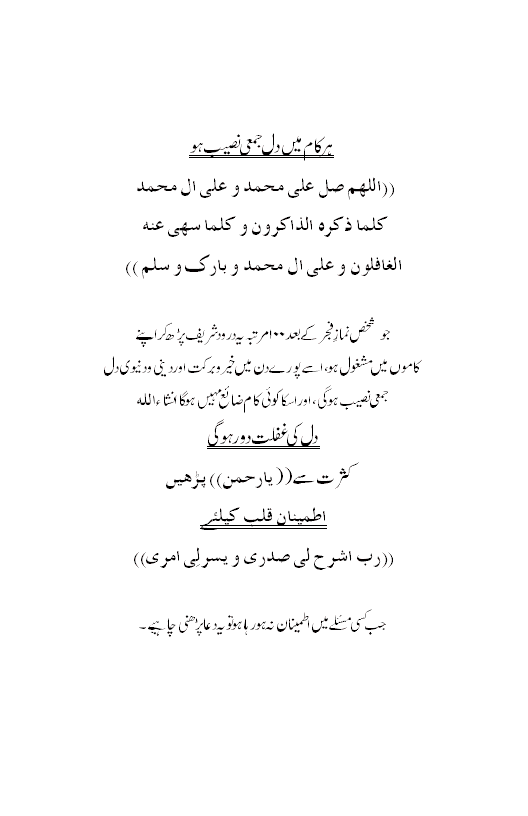 ہر کام میں دل جمعی نصیب ہو
((اللھم صل علی محمد و علی ال محمد
کلما ذکرہ الذاکرون و کلما سھی عنه
الغافلون و علی ال محمد و بارک و سلم))
جو شخص نمازِ فجر کے بعد ۱۰۰ مرتبہ یہ درود شریف پڑھ کر اپنے
کاموں میں مشغول ہو، اسے پورے دن میں خیر و برکت اور دینی و دنیوی دل
جمعی نصیب ہوگی، اور اسکا کوئی کام ضائع نہیں ہوگا انشاءالله
دل کی غفلت دور ہوگی
کثرت سے ((یارحمن)) پڑھیں
اطمینان قلب کیلئے
((رب اشرح لی صدری و یسرلِی امری))
جب کسی مسئلے میں اطمینان نہ ہو رہا ہو تو یہ دعا پڑھنی چاہیے۔